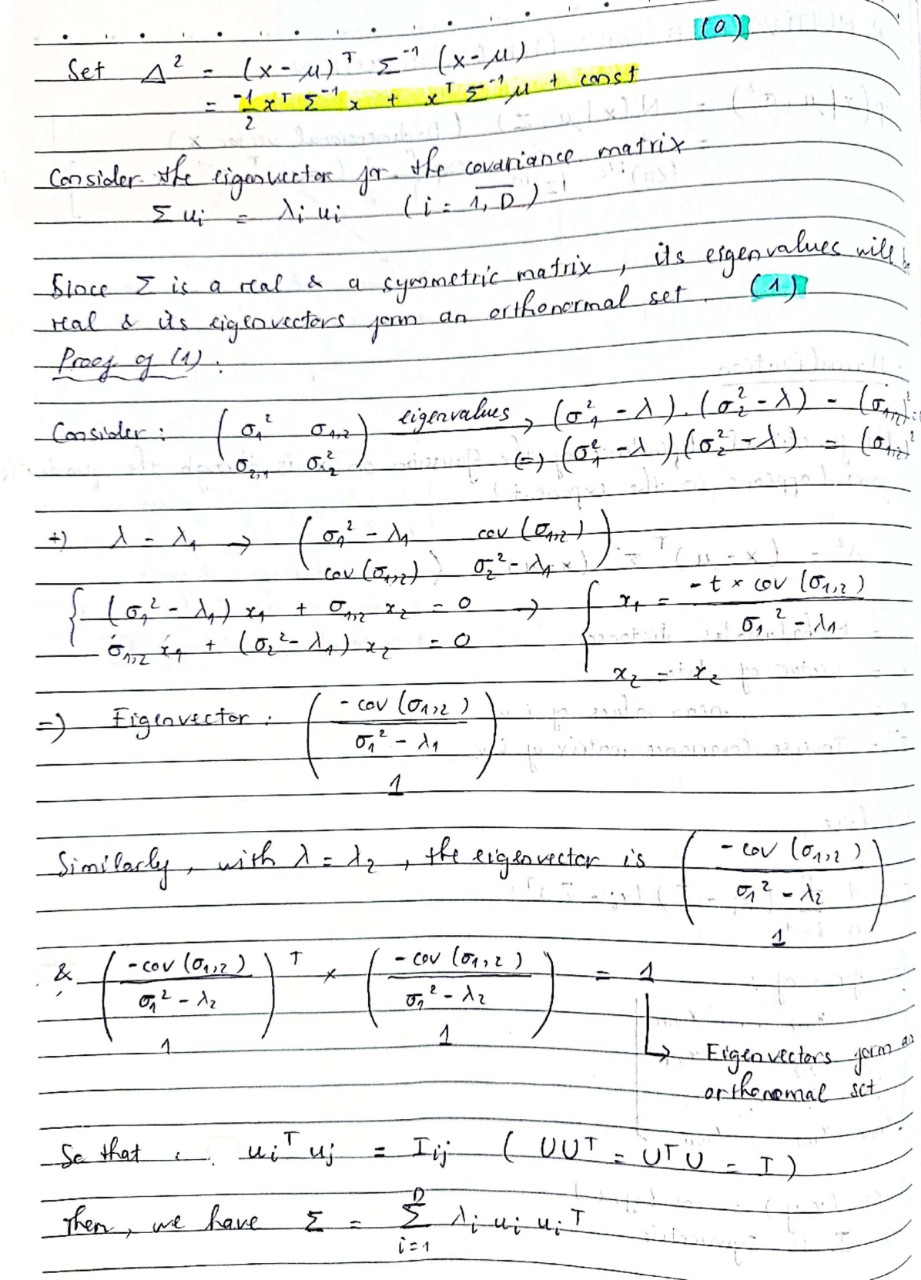 (0)
Set Δ² = (x-μ)ᵀ Σ⁻¹ (x-μ)
= -1/2 xᵀ Σ⁻¹ x + xᵀ Σ⁻¹ μ + const
Consider the eigenvector for the covariance matrix
Σ ui = λi ui (i = 1, D)
Since Σ is a real & a symmetric matrix, its eigenvalues will be
real & its eigenvectors form an orthonormal set. (1)
Proof of (1):
Consider: (σ₁² σ₁,₂ ; σ₂,₁ σ₂²) eigenvalues → (σ₁² - λ).(σ₂² - λ) - (σ₁,₂)²
(=) (σ₁² - λ).(σ₂² - λ) = (σ₁,₂)²
+) λ = λ₁ → (σ₁² - λ₁ cov (σ₁,₂) ; cov (σ₁,₂) σ₂² - λ₁)
{ (σ₁² - λ₁) x₁ + σ₁,₂ x₂ = 0 → { x₁ = -t × cov (σ₁,₂) / σ₁² - λ₁
σ₁,₂ x₁ + (σ₂² - λ₁) x₂ = 0 x₂ = x₂
=) Eigenvector: (-cov (σ₁,₂) / σ₁² - λ₁ ; 1)
Similarly, with λ = λ₂, the eigenvector is (-cov (σ₁,₂) / σ₁² - λ₂ ; 1)
& (-cov (σ₁,₂) / σ₁² - λ₂ ; 1)ᵀ × (-cov (σ₁,₂) / σ₁² - λ₂ ; 1) = 1
↳ Eigenvectors form an
orthonomal set
So that: uiᵀ uj = Iij (UUᵀ = UᵀU = I)
Then, we have Σ = Σ_{i=1}^{D} λi ui uiᵀ